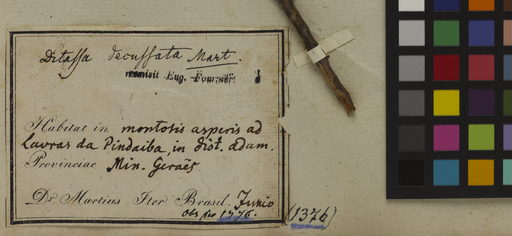 Ditassa decussata Mart.
remisit Eug. Fournier
Habitat in montosis asperis ad
Lavras da Pindaiba in dist. adam.
Provinciae Min. Geraës
Dr. Martius Iter Brasil. Junio
Obs. no 1376. (1376)